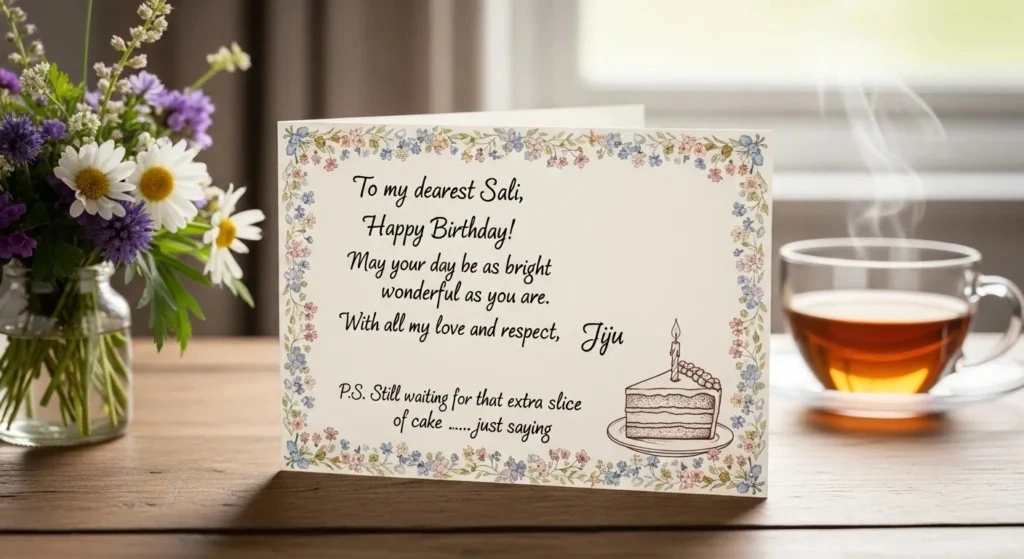 To my dearest Sali,
Happy Birthday!
May your day be as bright
wonderful as you are.
With all my love and respect, Jiju
P.S. Still waiting for that extra slice
of cake ......just saying